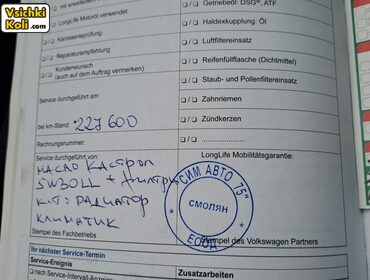 Vsichki
Koli.com
mit erweitertem
☐ LongLife Motoröl verwendet
☐ Karosserieprüfung
☐ Reparaturempfehlung
☐ Kundenwunsch
(auch auf dem Auftrag vermerken)
Service durchgeführt am:
bei km-Stand: 227600
Rechnungsnummer:
Service durchgeführt von:
МАСЛО КАСТРОЛ
5W30LL + ФИЛТРИ
К-Т: РАДИАТОР
КЛИМАТИК
Stempel des Fachbetriebs
☐ / ☐ Getriebeöl: DSG®, ATF
☐ / ☐ Haldexkupplung: Öl
☐ / ☐ Luftfiltereinsatz
☐ / ☐ Reifenfüllflasche (Dichtmittel)
☐ / ☐ Staub- und Pollenfiltereinsatz
☐ / ☐ Zahnriemen
☐ / ☐ Zündkerzen
☐ / ☐ ........................
LongLife Mobilitätsgarantie:
"СИМ АВТО 75"
СМОЛЯН
ЕООД
Stempel des Volkswagen Partners
Ihr nächster Service-Termin
Service-Ereignis
☐ nach Service-Intervall-Anzeige
Zusatzarbeiten